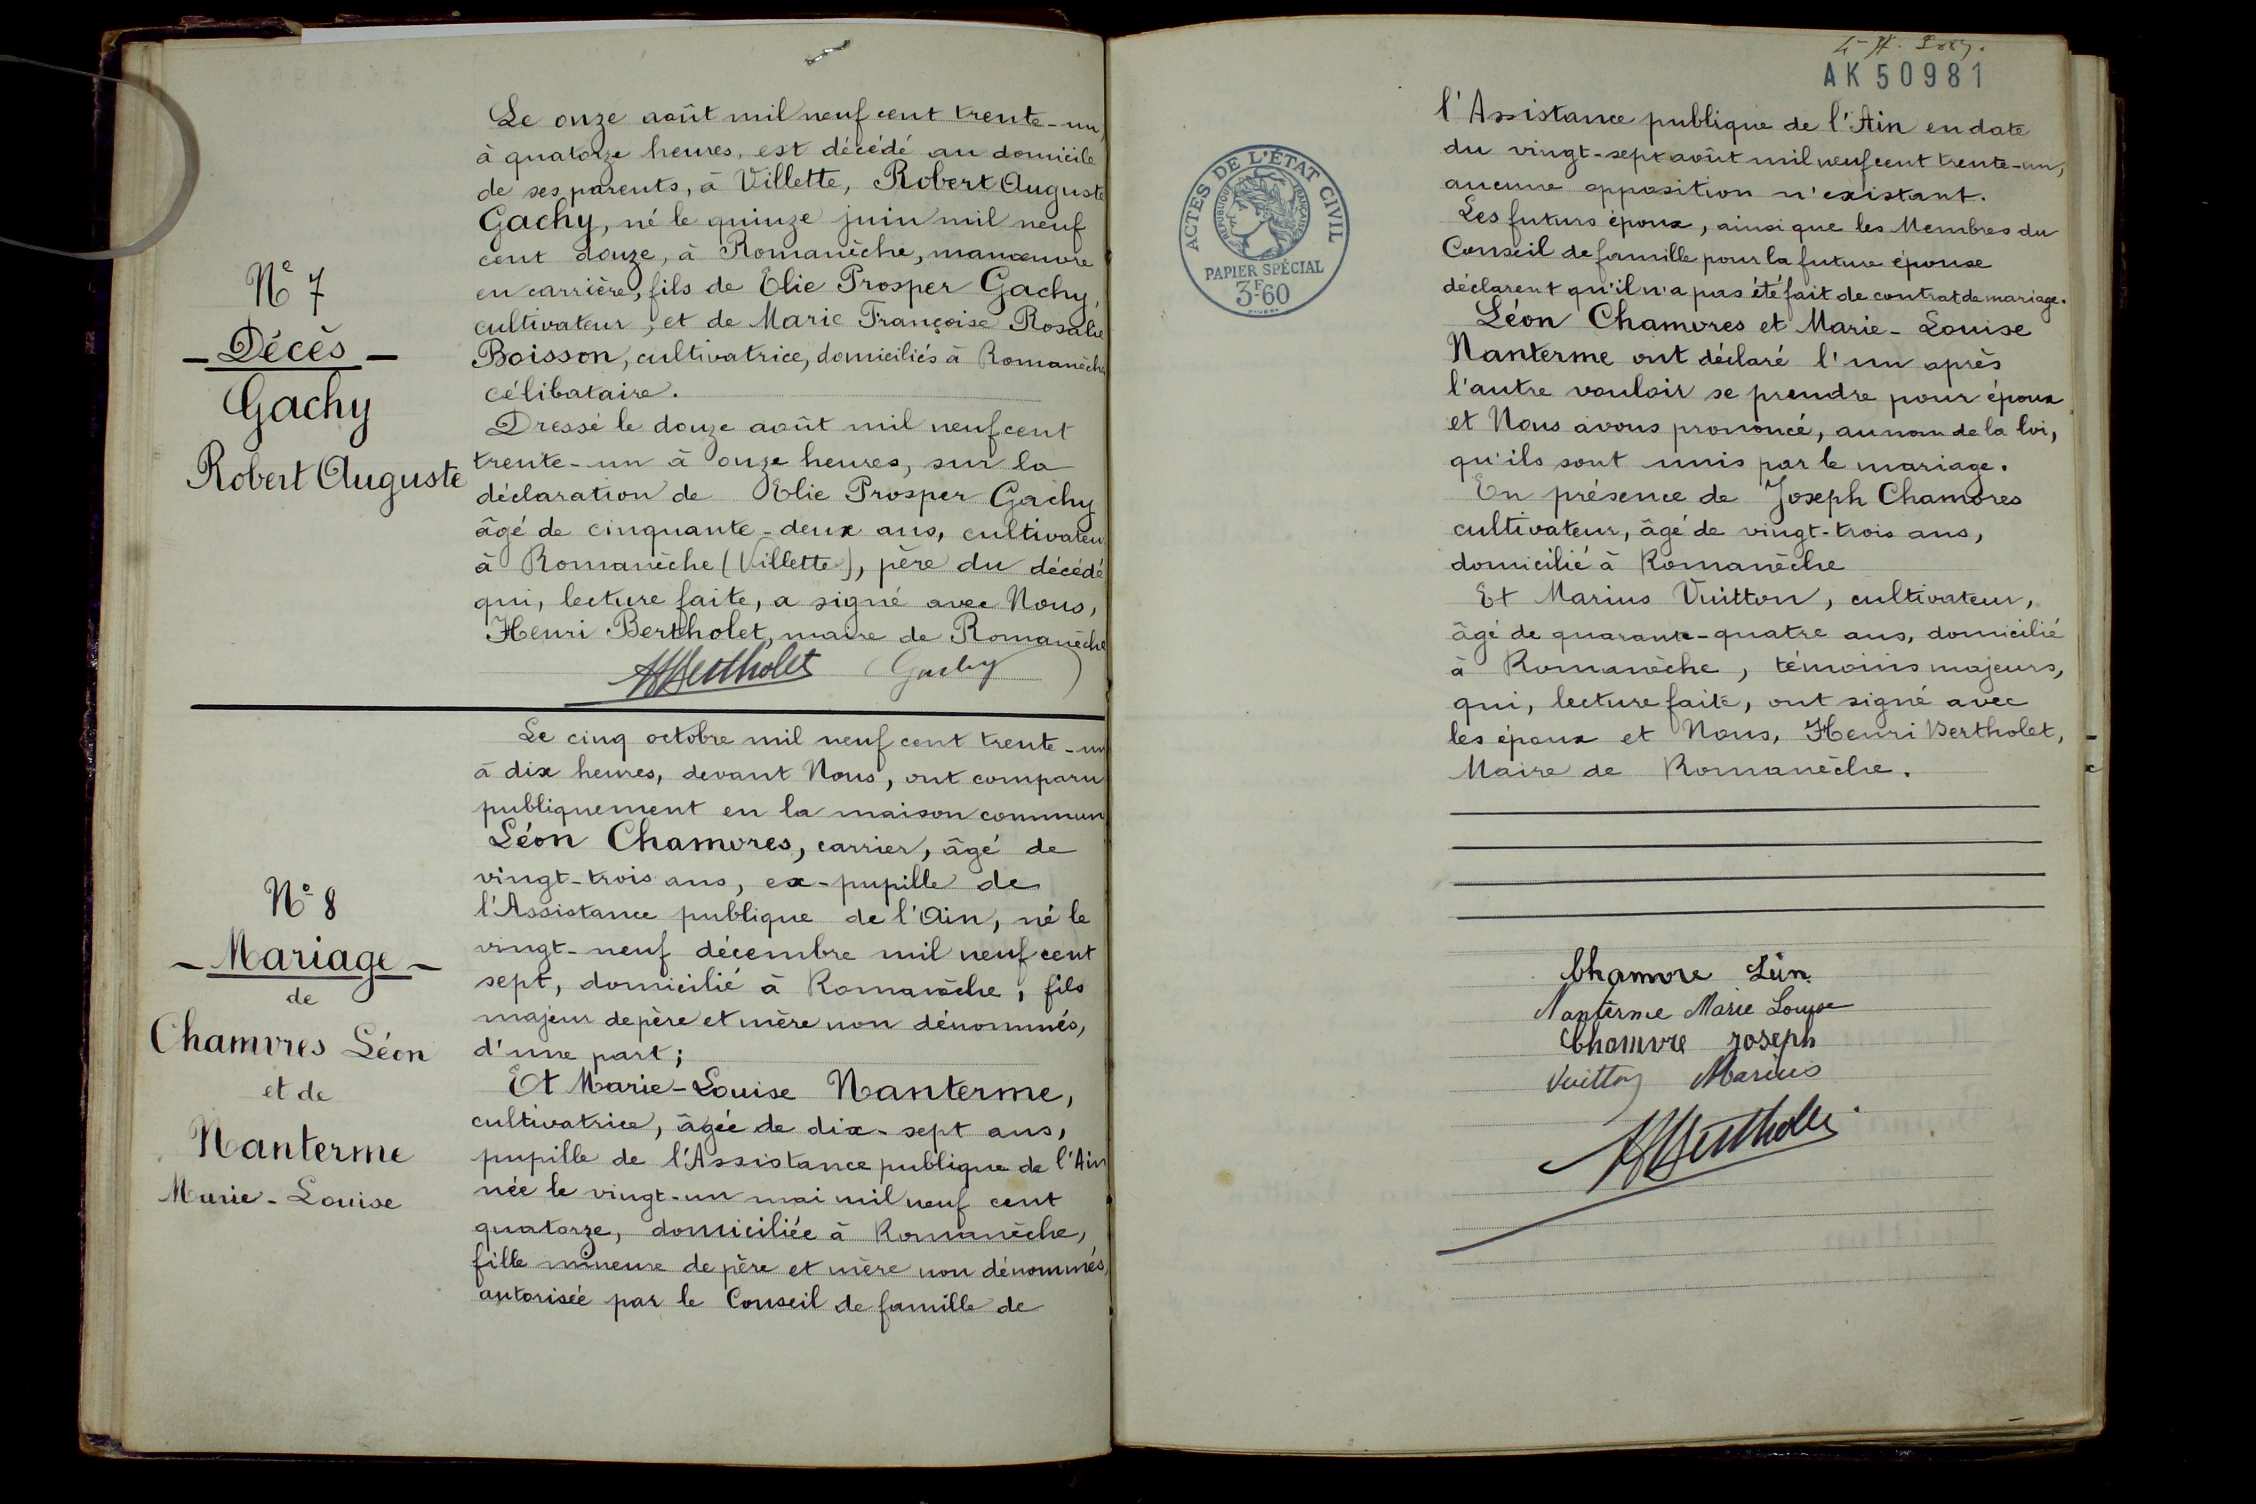 Nº 7
Décès
Gachy
Robert Auguste
Le onze août mil neuf cent trente-un,
à quatorze heures, est décédé au domicile
de ses parents, à Villette, Robert Auguste
Gachy, né le quinze juin mil neuf
cent douze, à Romanèche, manœuvre
en carrière, fils de Elie Prosper Gachy,
cultivateur, et de Marie Françoise Rosalie
Boisson, cultivatrice, domiciliés à Romanèche
célibataire.
Dressé le douze août mil neuf cent
trente-un à onze heures, sur la
déclaration de Elie Prosper Gachy
âgé de cinquante-deux ans, cultivateur
à Romanèche (Villette), père du décédé
qui, lecture faite, a signé avec Nous,
Henri Bertholet, maire de Romanèche
HBertholet Gachy
Nº 8
Mariage
de
Chamvres Léon
et de
Nanterme
Marie-Louise
Le cinq octobre mil neuf cent trente-un
à dix heures, devant Nous, ont comparu
publiquement en la maison commun
Léon Chamvres, carrier, âgé de
vingt-trois ans, ex-pupille de
l'Assistance publique de l'Ain, né le
vingt-neuf décembre mil neuf cent
sept, domicilié à Romanèche, fils
majeur de père et mère non dénommés,
d'une part;
Et Marie-Louise Nanterme,
cultivatrice, âgée de dix-sept ans,
pupille de l'Assistance publique de l'Ain
née le vingt-un mai mil neuf cent
quatorze, domiciliée à Romanèche,
fille mineure de père et mère non dénommés,
autorisée par le Conseil de famille de
AK 50981
ACTES DE L'ÉTAT CIVIL
RÉPUBLIQUE FRANÇAISE
PAPIER SPÉCIAL
3F60
l'Assistance publique de l'Ain en date
du vingt-sept août mil neuf cent trente-un,
aucune opposition n'existant.
Les futurs époux, ainsi que les Membres du
Conseil de famille pour la future épouse
déclarent qu'il n'a pas été fait de contrat de mariage.
Léon Chamvres et Marie-Louise
Nanterme ont déclaré l'un après
l'autre vouloir se prendre pour époux
et Nous avons prononcé, au nom de la loi,
qu'ils sont unis par le mariage.
En présence de Joseph Chamvres
cultivateur, âgé de vingt-trois ans,
domicilié à Romanèche
Et Marius Vuitton, cultivateur,
âgé de quarante-quatre ans, domicilié
à Romanèche, témoins majeurs,
qui, lecture faite, ont signé avec
les époux et Nous, Henri Bertholet,
Maire de Romanèche.
Chamvre Léon
Nanterme Marie Louise
Chamvre Joseph
Vuitton Marius
HBertholet